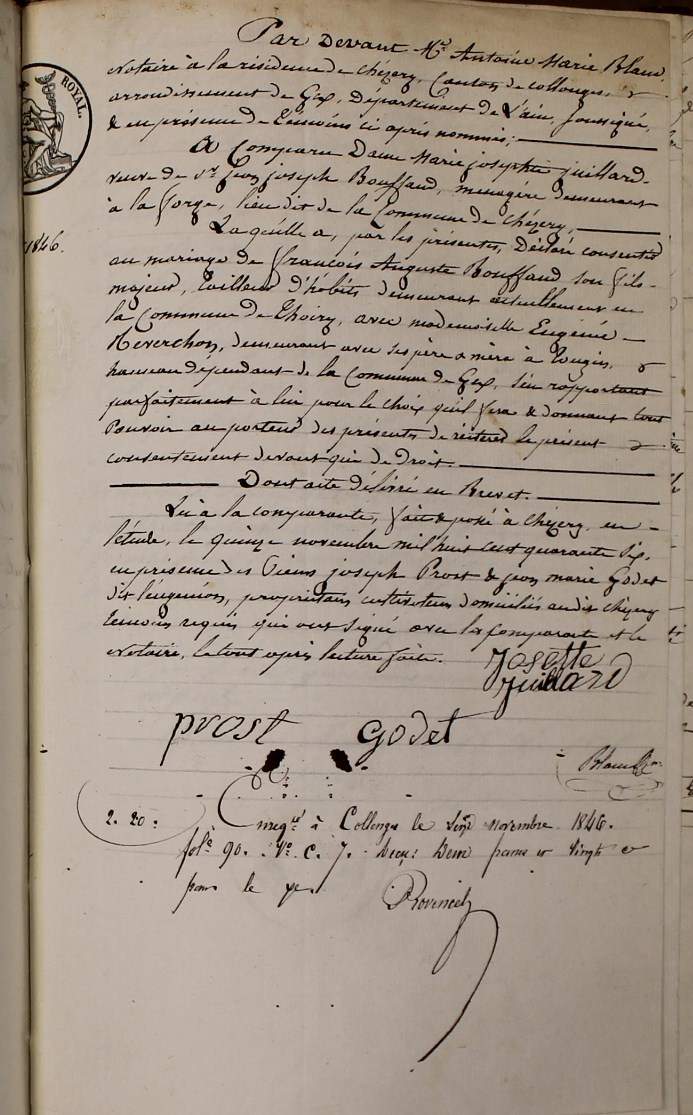 Par Devant Me Antoine Marie Blanc
Notaire à la résidence de Chézery, Canton de Collonges, &
arrondissement de Gex, Département de L'ain, soussigné,
& en présence de témoins ci après nommés;
A Comparu Dame Marie josephte juillard
veuve de Sr. jean joseph Bouffand, menagère demeurant
à la forge, lieu dit de la Commune de Chézery,
ROYAL.
1846.
Laquelle a, par les présentes, Déclaré consentir
au mariage de françois Auguste Bouffand son fils
majeur, tailleur d'habits demeurant actuellement en
la Commune de Thoiry, avec mademoiselle Eugénie
Reverchon, demeurant avec ses père & mère à Tougin, &
hameau dépendant de la Commune de Gex, s'en rapportant
parfaitement à lui pour le choix qu'il fera & donnant tout
Pouvoir au porteur des présentes de réitérer le présent &
consentement devant qui de droit.
Dont acte délivré en Brevet.
Lu à la comparante, fait & passé à Chézery, en
l'étude, le quinze novembre mil huit cent quarante six,
en présence des Srs joseph Prost & jean marie Godet
dit propriétaires cultivateurs domiciliés audit Chézery
témoins requis qui ont signé avec la Comparante et le
Notaire, le tout après lecture faite.
Josette
Juillard
Prost Godet
Blanc
2. 20.
Enregté à Collonges le novembre 1846.
folo 90. Vo. C. 7. Reçu: Deux francs & Vingt c
pour le